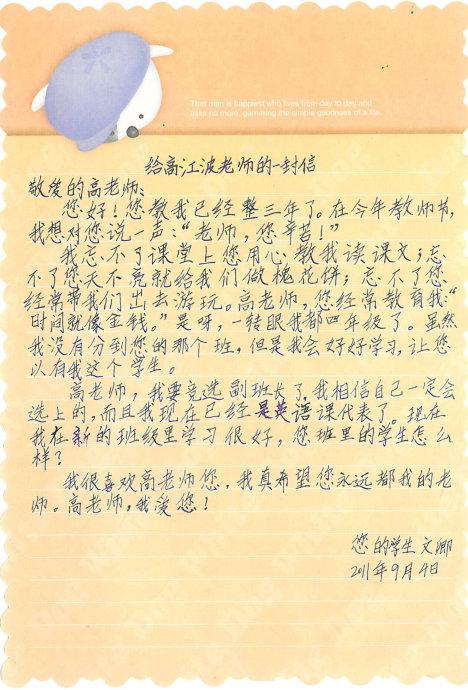 That man is happiest who lives from day to day and
asks no more, garnering the simple goodness of a life.
给高江波老师的一封信
敬爱的高老师:
您好!您教我已经整三年了。在今年教师节,
我想对您说一声:“老师,您辛苦!”
我忘不了课堂上您用心教我读课文;忘
不了您天不亮就给我们做槐花饼;忘不了您
经常带我们出去游玩。高老师,您经常教育我:“
时间就像金钱。”是呀,一转眼我都四年级了。虽然
我没有分到您的那个班,但是我会好好学习,让您
以有我这个学生。
高老师,我要竞选副班长了,我相信自己一定会
选上的,而且我现在已经是英语课代表了。现在
我在新的班级里学习很好,您班里的学生怎么
样?
我很喜欢高老师您,我真希望您永远都我的老
师。高老师,我爱您!
您的学生文卿
2011年9月4日